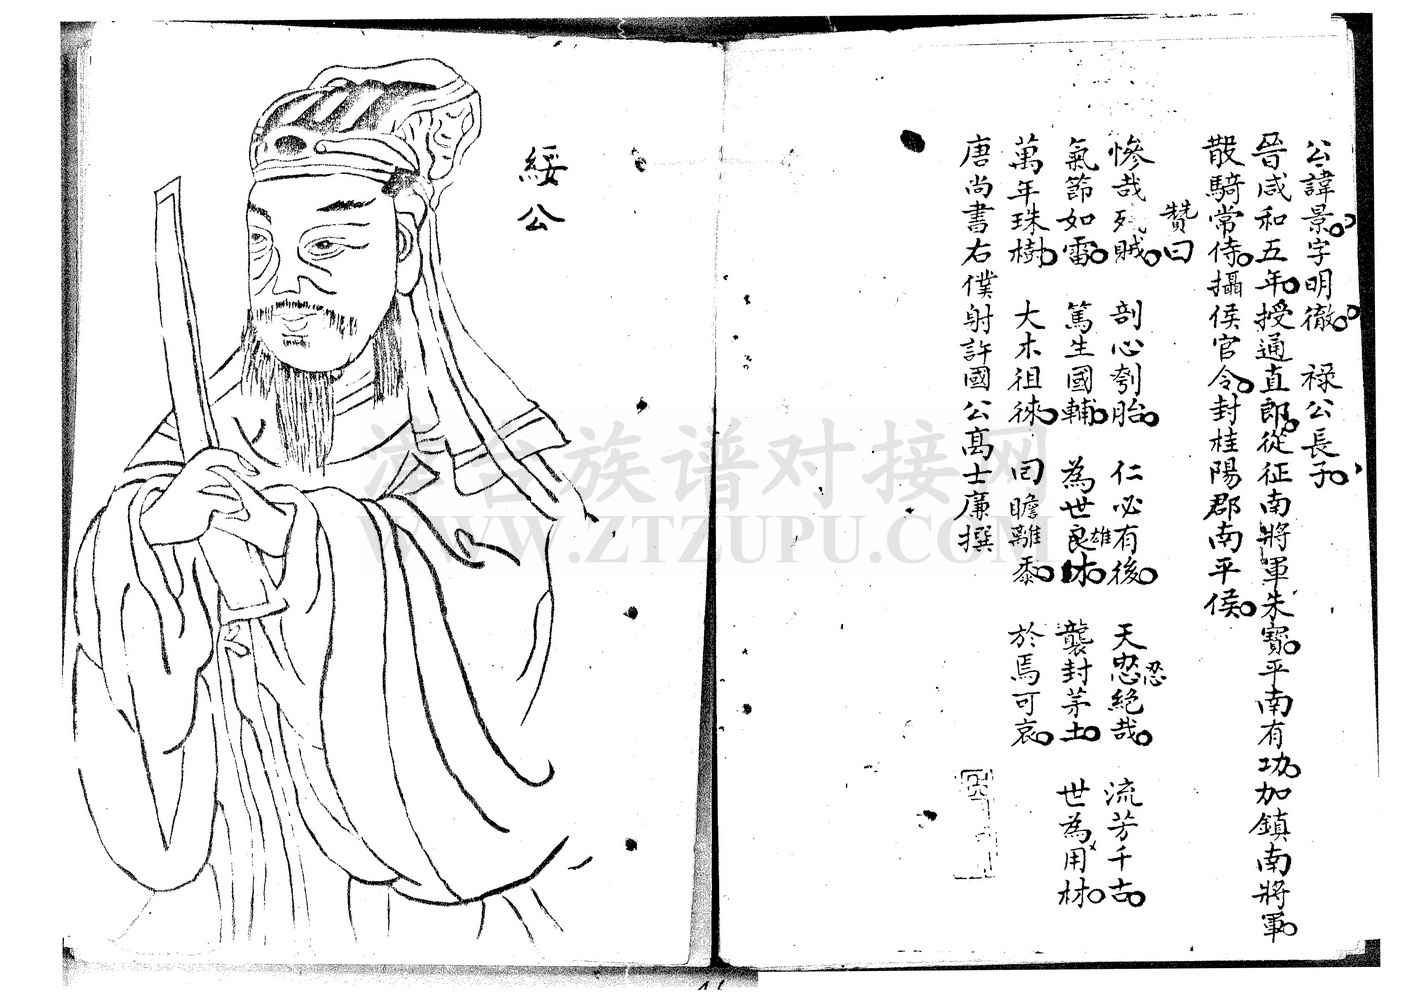 公諱景。字明徹。 祿公長子。
晉咸和五年。授通直郎。從征南將軍朱寶。平南有功。加鎮南將軍。
散騎常侍。攝侯官令。封桂陽郡南平侯。
贊曰
慘哉歹賊。 剖心刳胎。 仁必有後。 天忍忍絕哉。 流芳千古。
氣節如雷。 篤生國輔。 為世良雄休。 襲封茅土。 世為用材。
萬年珠樹。 大木徂徠。 回瞻離黍。 於焉可哀。
唐尚書右僕射許國公高士廉撰
綏公
港台族谱对接网
WWW.ZTZUPU.COM